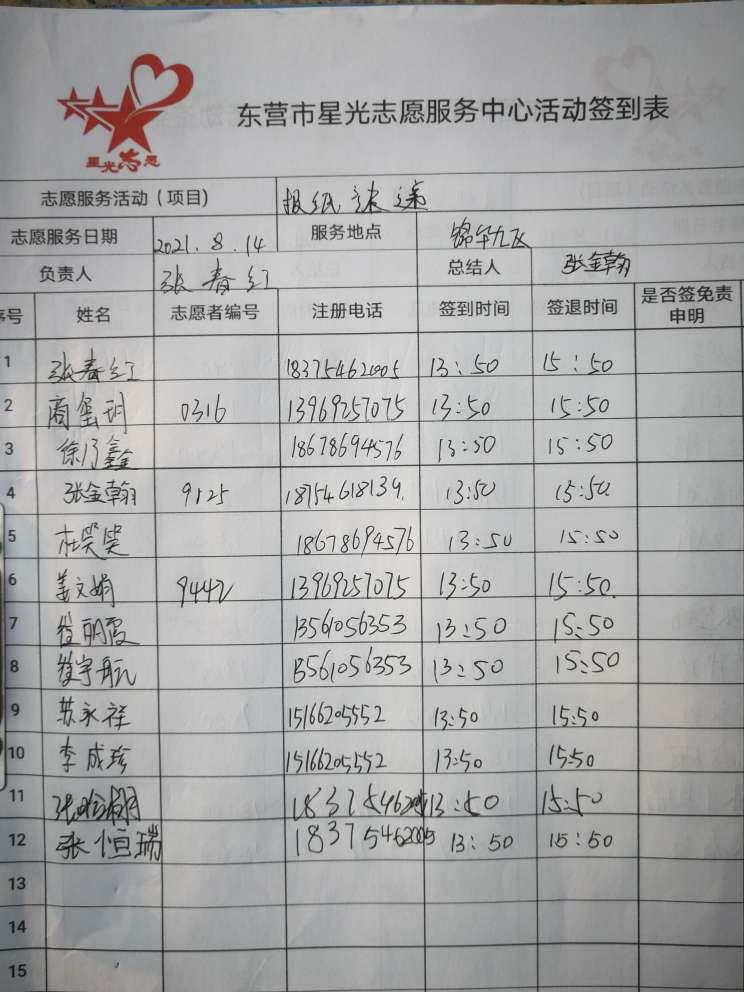 星光志愿
东营市星光志愿服务中心活动签到表
志愿服务活动（项目） 报纸速递
志愿服务日期 2021.8.14 服务地点 锦华九区
负责人 张春红 总结人 张金翰
序号 姓名 志愿者编号 注册电话 签到时间 签退时间 是否签免责申明
1 张春红 18375462005 13:50 15:50
2 商玺玥 0316 13969257075 13:50 15:50
3 徐乃鑫 18678694576 13:50 15:50
4 张金翰 9125 18754618139. 13:50 15:50.
5 杜笑笑 18678694576 13:50 15:50
6 姜文娟 9442 13969257075 13:50 15:50.
7 明霞 13561056353 13:50 15:50
8 宇航 13561056353 13:50 15:50
9 苏永祥 15166205552 13:50 15:50
10 李成珍 15166205552 13:50 15:50
11 张 18375462005 13:50 15:50
12 张恒瑞 18375462005 13:50 15:50
13
14
15